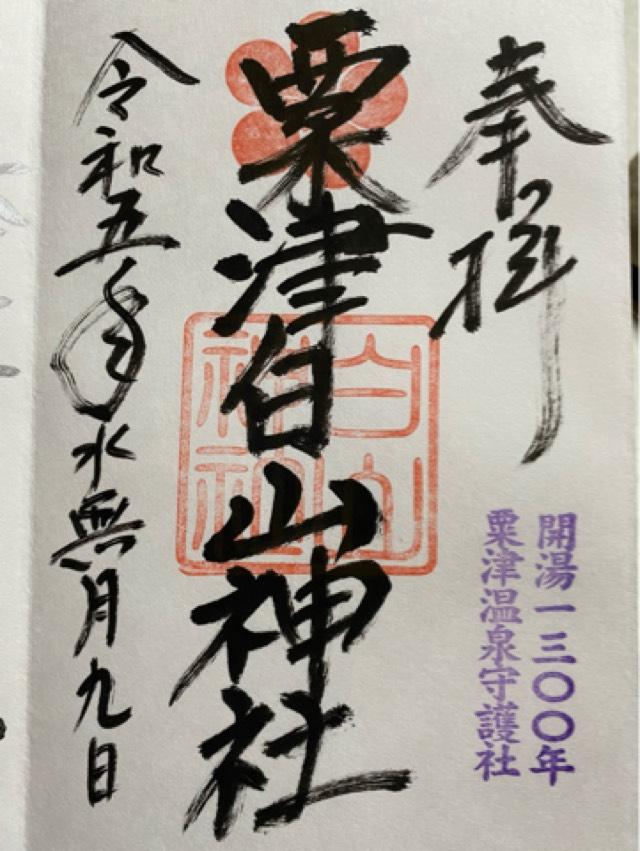 奉拝
開湯一三〇〇年
粟津温泉守護社
粟津白山神社
白山
神社
令和五年水無月九日